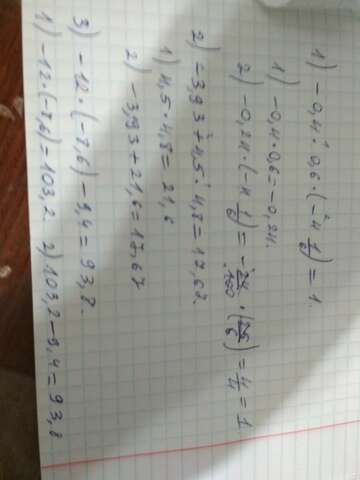 1) -0,4 · 0,6 · (-4 1/6) = 1.
1) -0,4 · 0,6 = -0,24.
2) -0,24 · (-4 1/6) = -24/100 · (25/6) = 4/4 = 1
2) -3,93 + 4,5 · 4,8 = 17,67.
1) 4,5 · 4,8 = 21,6
2) -3,93 + 21,6 = 17,67
3) -12 · (-8,6) - 9,4 = 93,8.
1) -12 · (-8,6) = 103,2. 2) 103,2 - 9,4 = 93,8